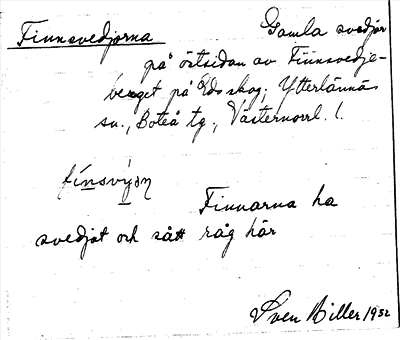 Finnsvedjorna
Gamla svedjor
på östsidan av Finnsvedje-
berget på Eds skog, Ytterlännäs
sn., Boteå tg., Västernorrl. l.
finsvýsn
Finnarna ha
svedjat och sått råg här
Sven Biller 1932